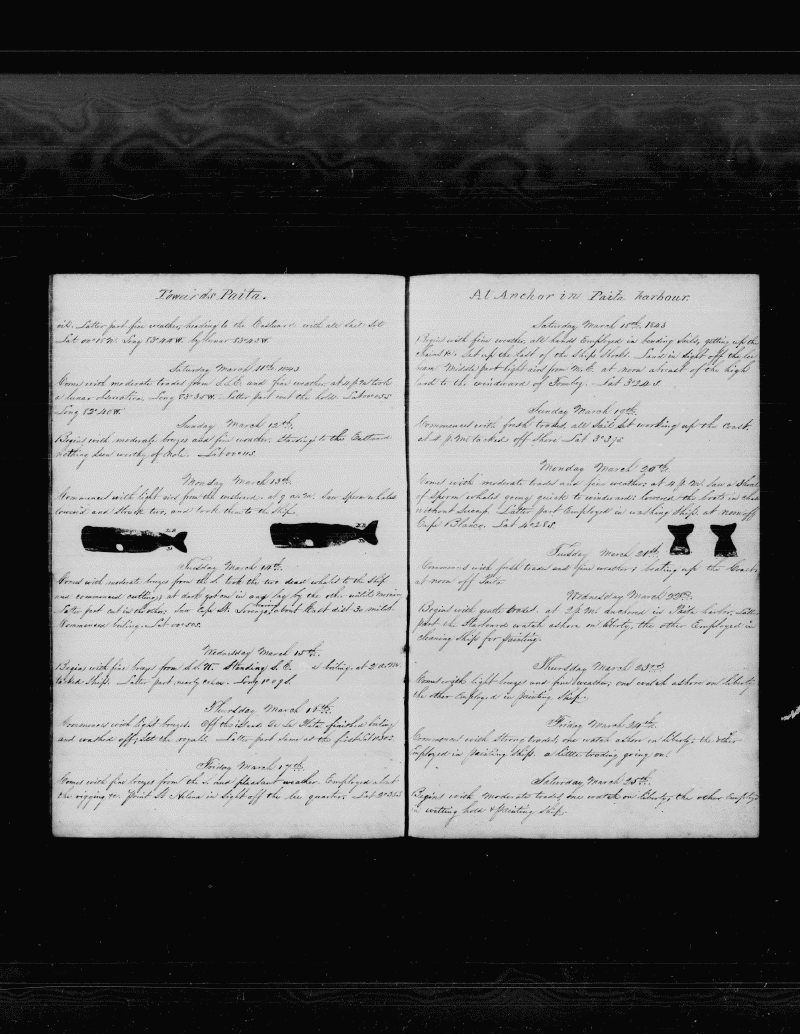 Towards Paita.
oil. Latter part fine weather, heading to the Eastward with all sail set
Lat 00°15 N. Long 83°44 W. by lunar 83°43 W.
Saturday March 11th 1843
Comes with moderate trades from S.S.E. and fine weather, at 4 p.m. took
a lunar observation, Long 83°30 W. Latter part
Long 82°40 W.
Sunday March 12th.
Begins with moderate breezes and fine weather. Standing to the Eastward
nothing seen worthy of Note. Lat
Monday March 13th.
Commences with light airs from the at 9 a.m. Saw Sperm whales
lowered and Struck two, and took them to the Ship.
Tuesday March 14th.
Comes with moderate breezes from the S. took the two dead whales to the Ship
and commenced cutting; at dark got one in and lay by the other until morning
Latter part cut in the other, Saw Cape St. Lorenzo bearing about East dist 30 miles
Commenced boiling. Lat 00°50 S.
Wednesday March 15th.
Begins with fine breezes from S.S.W. Standing S.E. boiling, at 2 a.m.
tacked Ship. Latter part nearly calm.
Thursday March 16th.
Commences with light breezes. Off the island De La Plata, finished boiling
and washed off; Set the royals. Latter part Same as the first
Friday March 17th.
Comes with fine breezes from the and pleasant weather Employed about
the rigging &c. Point St Helena in Sight off the lee quarter. Lat
At Anchor in Paita harbour.
Saturday March 18th. 1843
Begins with fine weather, all hands Employed in bending Sails, getting up the
Chains &c. Set up the last of the Ships Stock. Land in Sight off the lee
beam. Middle part light airs from N.E. at noon abreast of the high
land to the windward of Tombez. Lat 3°24 S.
Sunday March 19th.
Commences with fresh trades, all Sail Set working up the Coast.
at 4 p.m. tacked off Shore Lat 3°37 S
Monday March 20th.
Comes with moderate trades and fine weather at 4 P.M. Saw a Shoal
of Sperm whales going quick to windward; lowered the boats in chase
without Success. Latter part Employed in washing Ship, at noon off
Cape Blanco. Lat 4°28 S.
Tuesday March 21th.
Commences with fresh trades and fine weather; beating up the Coast
at noon off Paita
Wednesday March 22d.
Begins with gentle trades. at 2 P.M. Anchored in Paita harbor, Latter
part the Starboard watch ashore on liberty, the other Employed in
cleaning Ship for painting.
Thursday March 23rd.
Comes with light breezes and fine weather, one watch ashore on liberty
the other Employed in painting Ship.
Friday March 24th.
Commences with strong trades, one watch ashore on liberty, the other
Employed in painting Ship. a little trading going on.
Saturday March 25th.
Begins with moderate trades, one watch on liberty, the other Employed
in wetting hold & painting Ship.